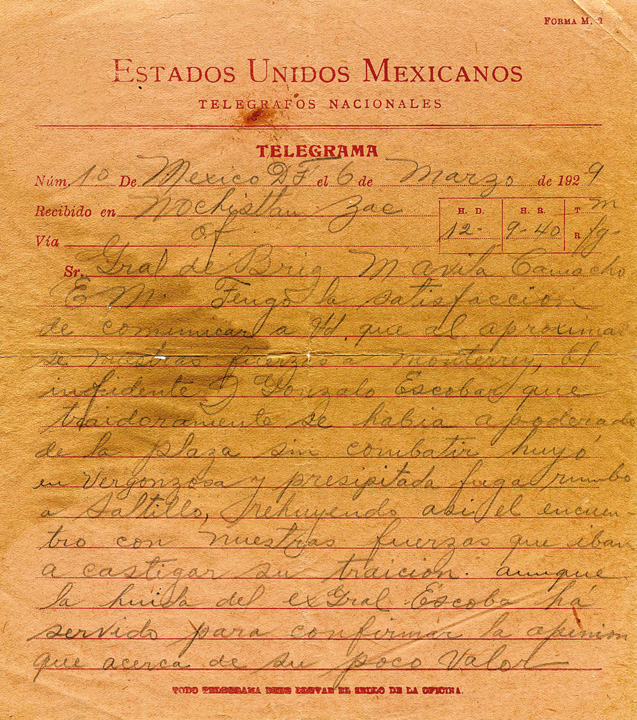 FORMA M. 2
ESTADOS UNIDOS MEXICANOS
TELEGRAFOS NACIONALES
TELEGRAMA
Núm. 10 De Mexico DF el 6 de Marzo de 1929
Recibido en Nochistlan Zac
H. D. H. R. T m
Vía of 12- 9-40 R fg-
Sr. Gral de Brig M Avila Camacho
E M. Tengo la satisfaccion
de comunicar a Ud. que al aproximar
se nuestras fuerzas a Monterrey, el
infidente J Gonzalo Escobar que
traidoramente se habia apoderado
de la plaza sin combatir huyó
en vergonzosa y presipitada fuga rumbo
a Saltillo, rehuyendo asi el encuen
tro con nuestras fuerzas que iban
a castigar su traición. aunque
la huida del exGral Escoba há
servido para confirmar la opinion
que acerca de su poco valor
TODO TELEGRAMA DEBE LLEVAR EL SELLO DE LA OFICINA.